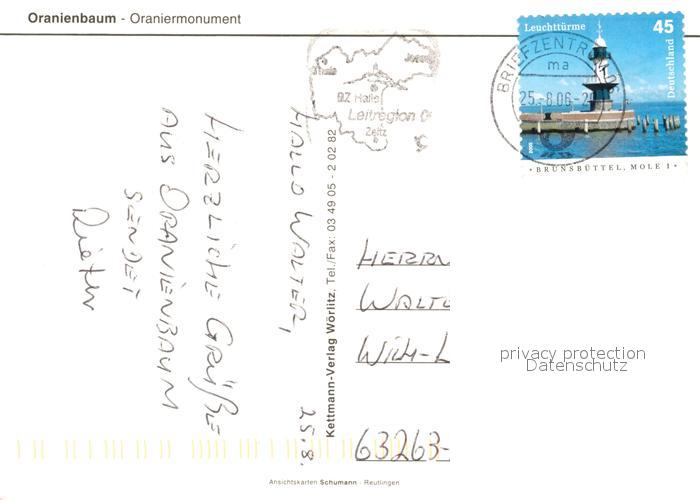 Oranienbaum - Oraniermonument
Leuchttürme 45
Deutschland
BRIEFZENTRUM
ma
25.-8.06-2
BZ Halle
Leitregion 0
Zeitz
BRUNSBÜTTEL, MOLE 1
HALLO WALTER, 25.8.
HERZLICHE GRÜßE
AUS ORANIENBAUM
SENDET
Dieter
Kettmann-Verlag Wörlitz, Tel./Fax: 03 49 05 - 2 02 82
HERRN
WALT
WILH-L
63263-
privacy protection
Datenschutz
Ansichtskarten Schumann - Reutlingen